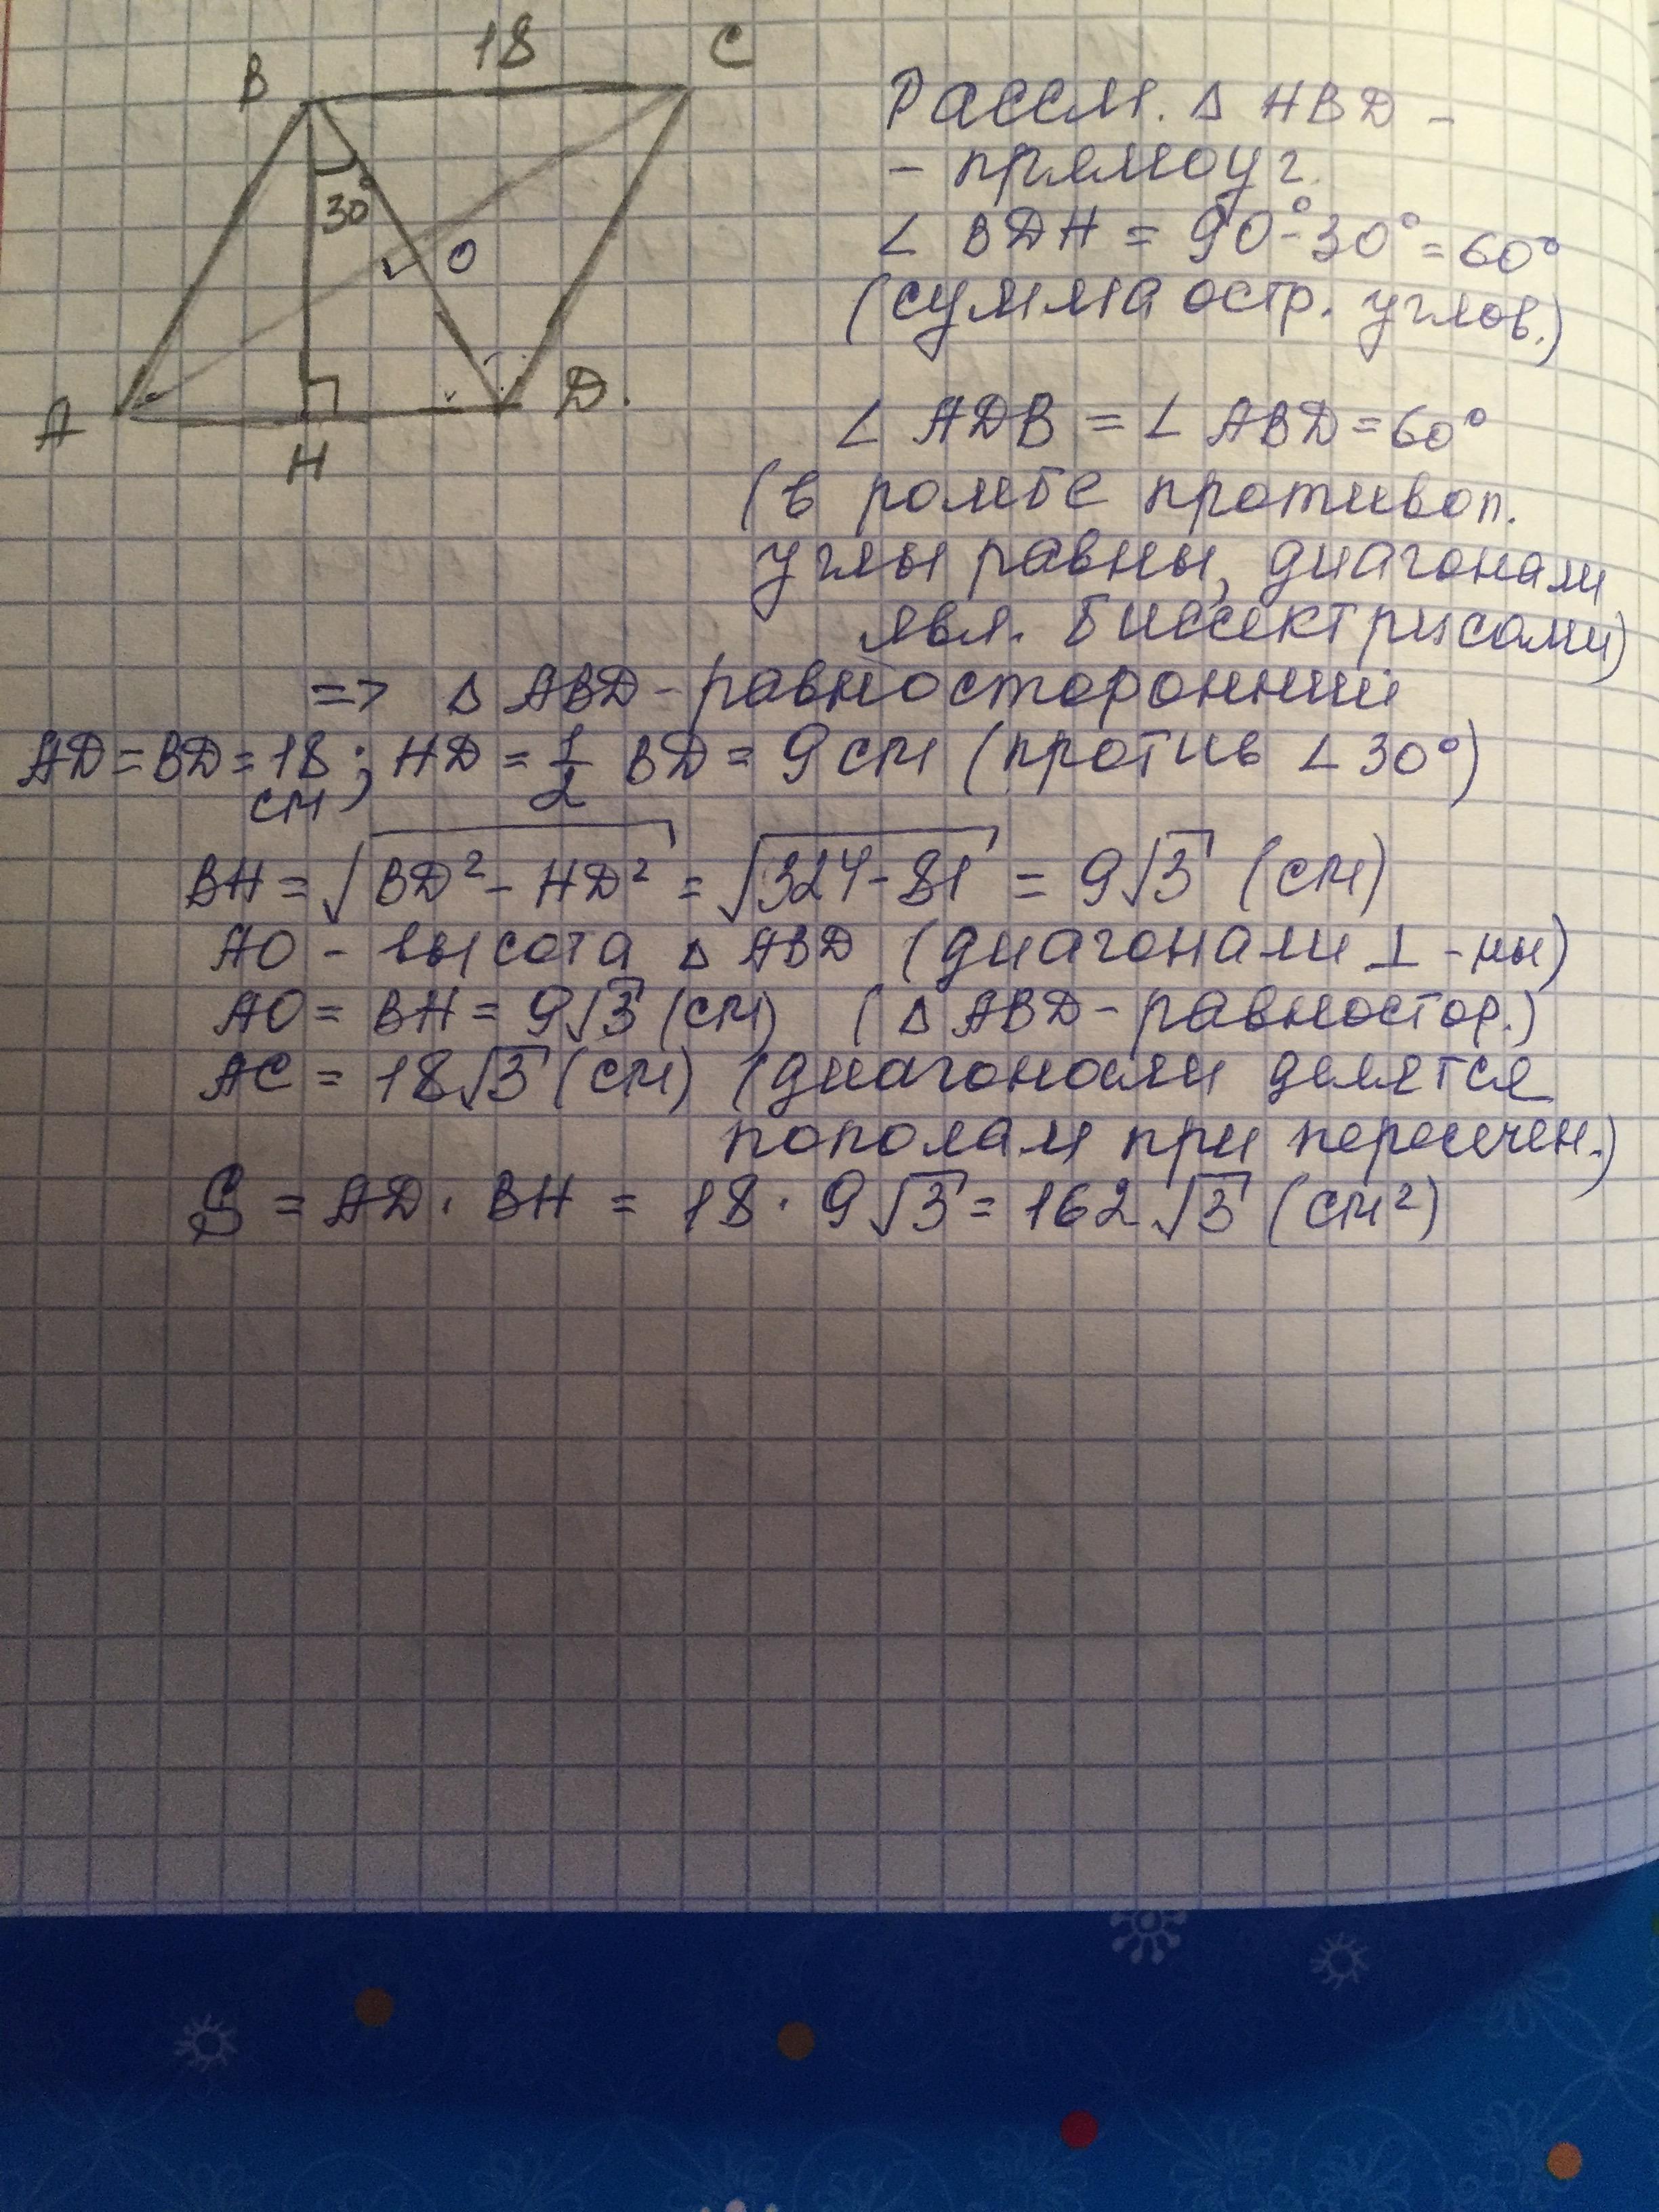 18
B
C
30°
O
A
H
D.
Рассм. Δ HBD -
- прямоуг.
∠ BDH = 90°-30°=60°
(сумма остр. углов.)
∠ ADB = ∠ ABD=60°
(в ромбе противоп.
углы равны, диагонали
явл. биссектрисами)
=> Δ ABD - равносторонний
AD=BD=18 см; HD = 1/2 BD = 9 см (против ∠30°)
BH = √(BD² - HD²) = √(324-81) = 9√3 (см)
AO - высота Δ ABD (диагонали ⊥ -ны)
AO = BH = 9√3 (см) (Δ ABD - равностор.)
AC = 18√3 (см) (диагонали делятся
пополам при пересечен.)
S = AD · BH = 18 · 9√3 = 162√3 (см²)